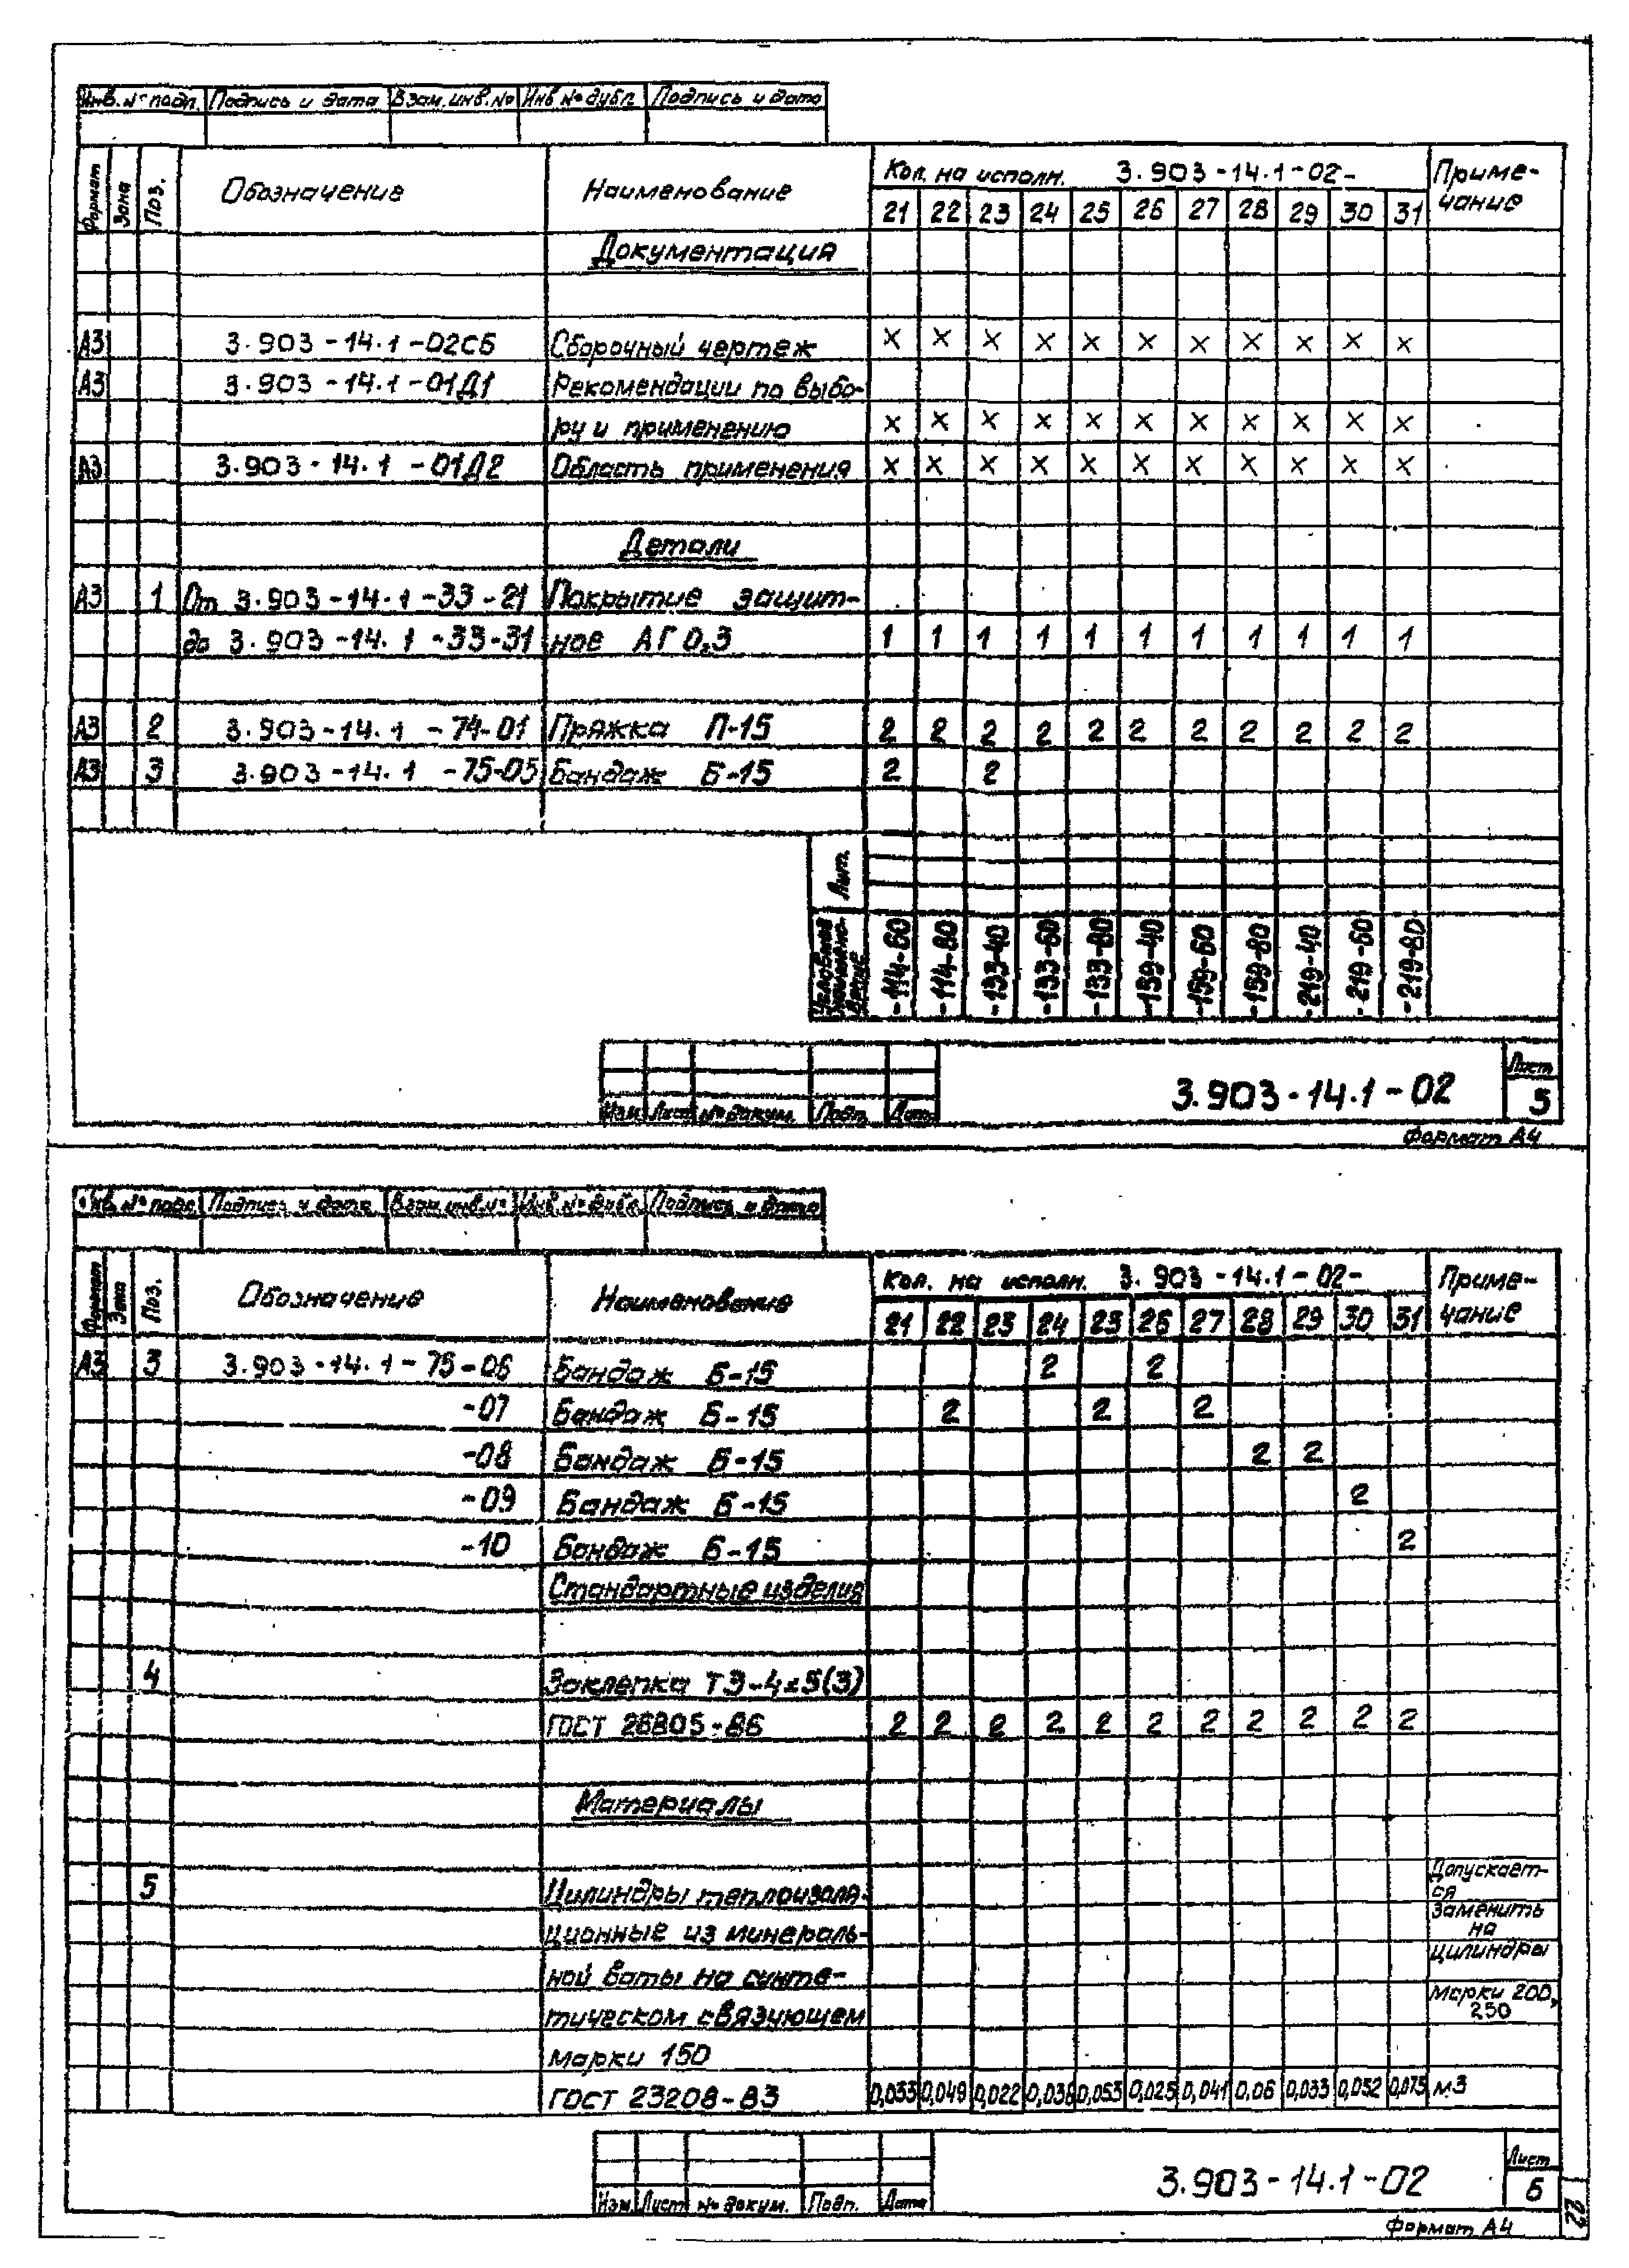 Инв. № подл. Подпись и дата Взам. инв. № Инв № дубл. Подпись и дата
Формат Зона Поз. Обозначение Наименование Кол. на исполн. 3.903-14.1-02- Приме-
чание
21 22 23 24 25 26 27 28 29 30 31
Документация
А3 3.903-14.1-02СБ Сборочный чертеж × × × × × × × × × × ×
А3 3.903-14.1-01Д1 Рекомендации по выбо-
ру и применению × × × × × × × × × × ×
А3 3.903-14.1-01Д2 Область применения × × × × × × × × × × ×
Детали
А3 1 От 3.903-14.1-33-21 Покрытие защит-
до 3.903-14.1-33-31 ное АГ 0,3 1 1 1 1 1 1 1 1 1 1 1
А3 2 3.903-14.1-74-01 Пряжка П-15 2 2 2 2 2 2 2 2 2 2 2
А3 3 3.903-14.1-75-05 Бандаж Б-15 2 2
Лит.
Условное обозначение -114-60 -114-80 -133-40 -133-60 -133-80 -159-40 -159-60 -159-80 -219-40 -219-60 -219-80
Изм Лист № докум. Подп. Дата 3.903-14.1-02 Лист
5
Формат А4
Инв. № подл. Подпись и дата Взам. инв. № Инв. № дубл. Подпись и дата
Формат Зона Поз. Обозначение Наименование Кол. на исполн. 3.903-14.1-02- Приме-
чание
21 22 23 24 25 26 27 28 29 30 31
А3 3 3.903-14.1-75-06 Бандаж Б-15 2 2
-07 Бандаж Б-15 2 2 2
-08 Бандаж Б-15 2 2
-09 Бандаж Б-15 2
-10 Бандаж Б-15 2
Стандартные изделия
4 Заклепка ТЭ-4х5(3)
ГОСТ 26805-86 2 2 2 2 2 2 2 2 2 2 2
Материалы
5 Цилиндры теплоизоля- Допускает-
ся
ционные из минераль- Заменить
на
ной ваты на синте- цилиндры
тическом связующем Марки 200,
250
марки 150
ГОСТ 23208-83 0,033 0,049 0,022 0,038 0,053 0,025 0,041 0,06 0,033 0,052 0,075 м3
Изм Лист № докум. Подп. Дата 3.903-14.1-02 Лист
6
Формат А4
22